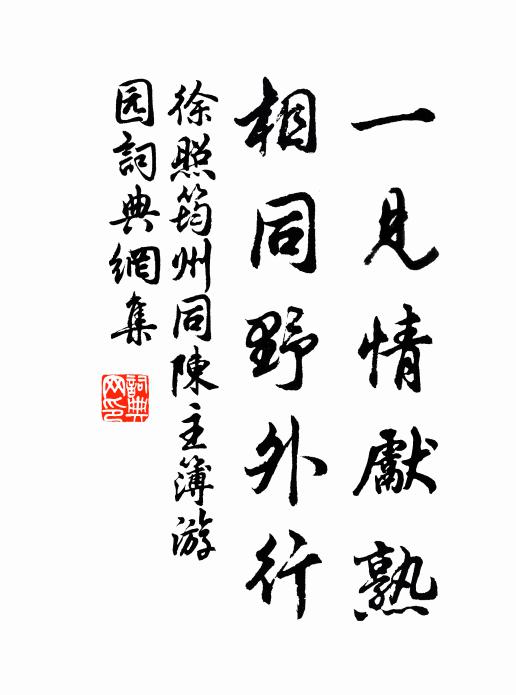 一見情獻熟
相同野外行
徐照筠州同陳主簿游
园詞典網集
詞典
网印